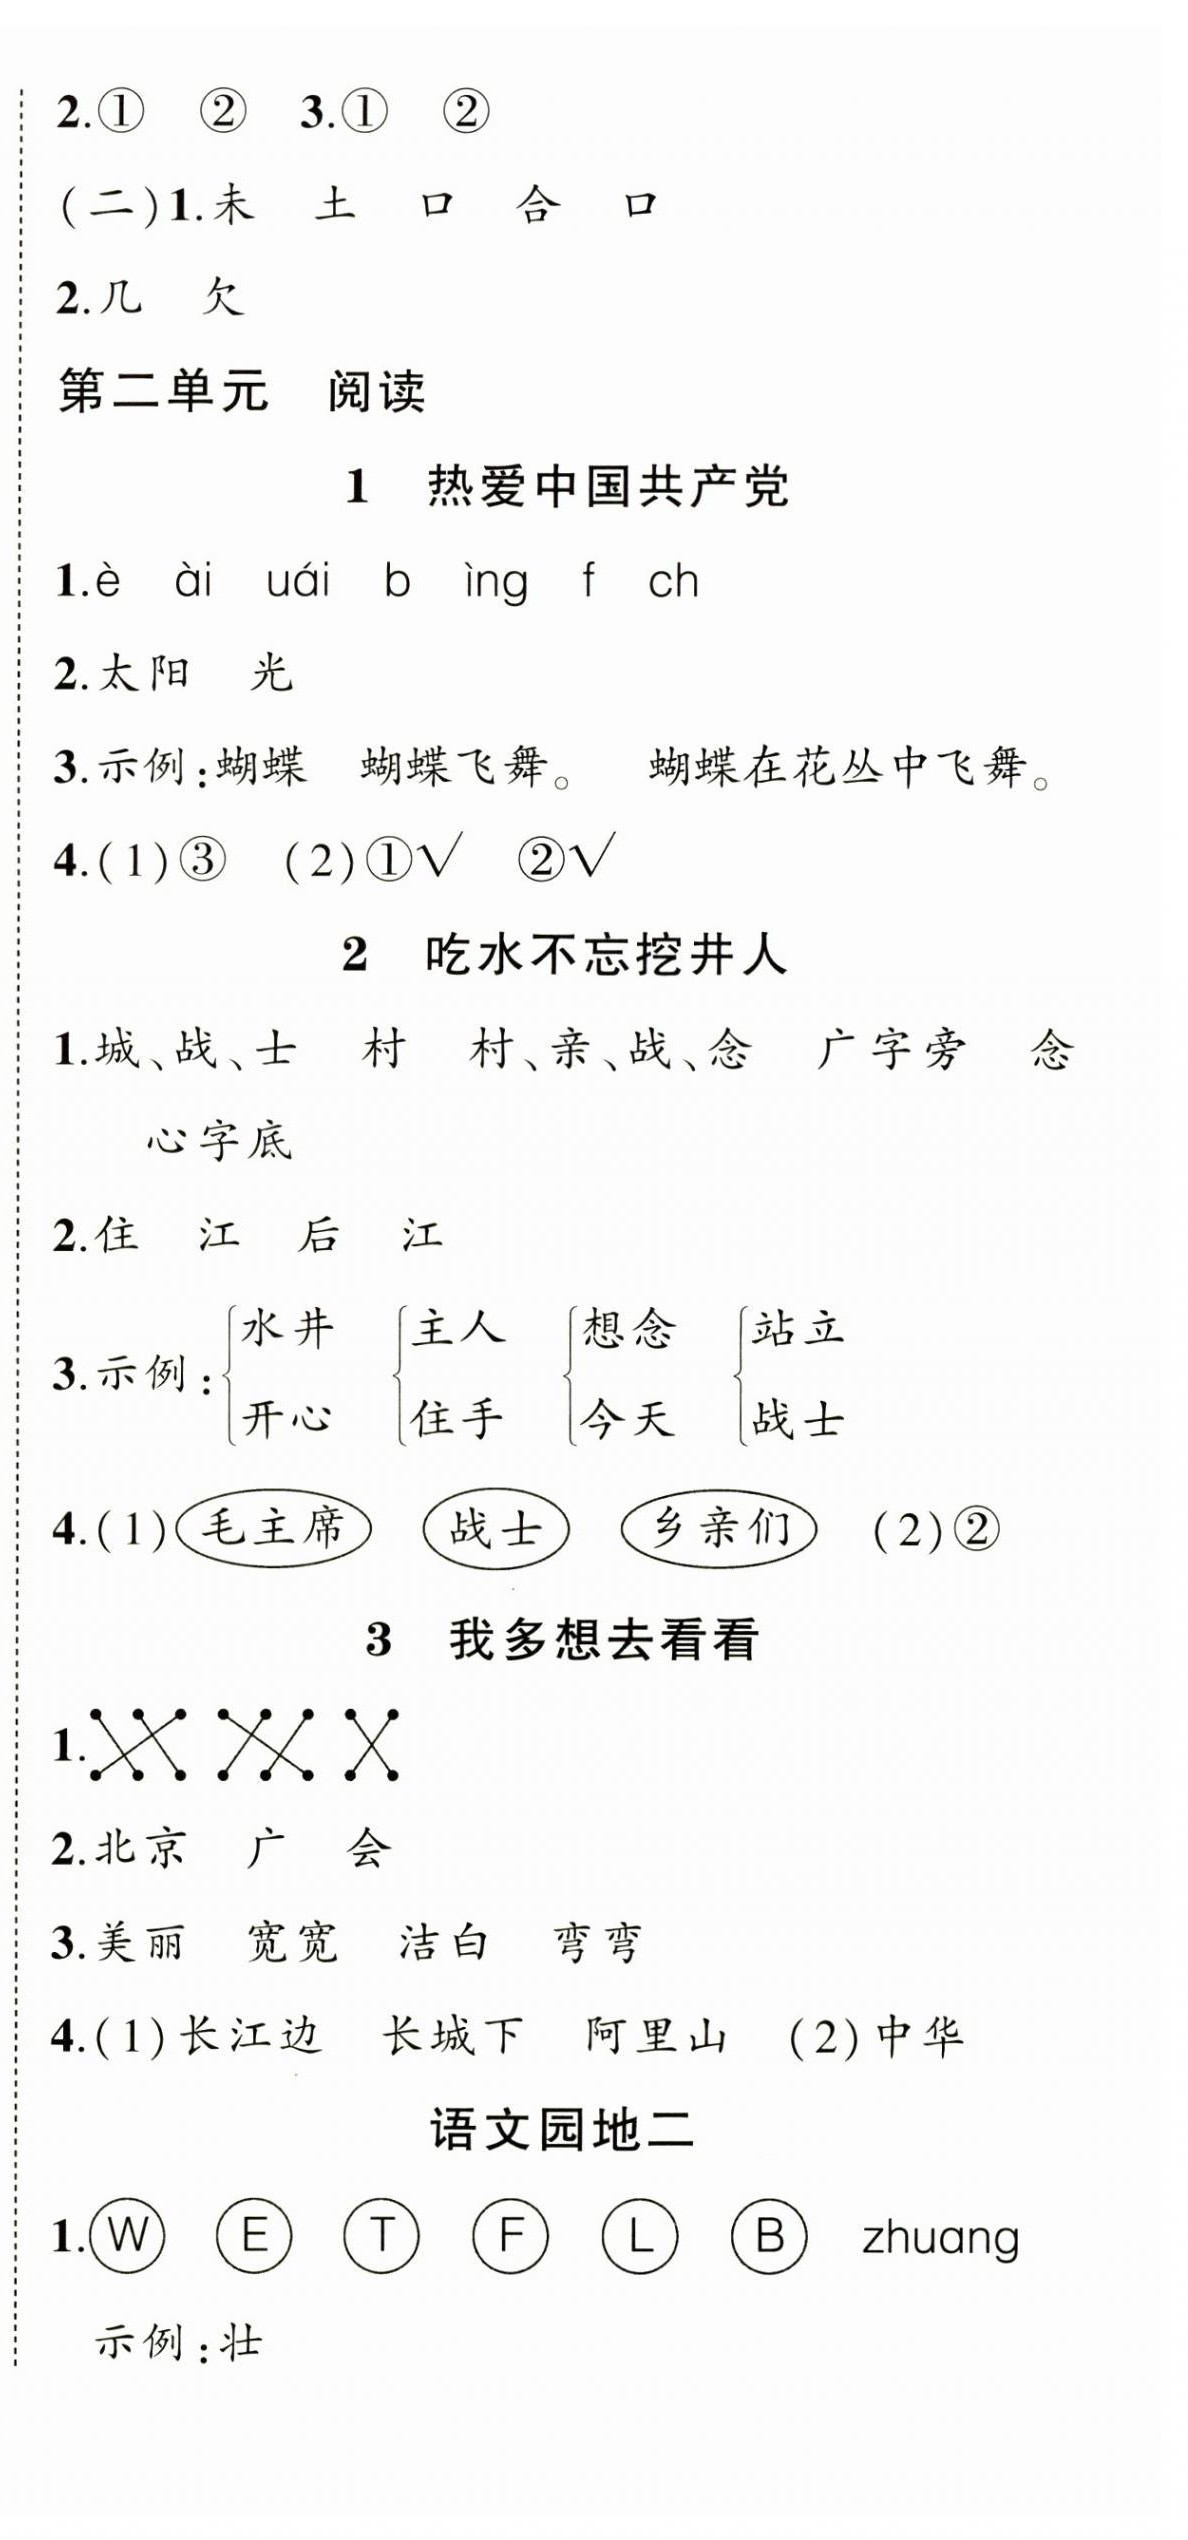 2.① ② 3.① ②
(二)1.未 土 口 合 口
2.几 欠
第二单元 阅读
1 热爱中国共产党
1.è ài uái b ìng f ch
2.太阳 光
3.示例:蝴蝶 蝴蝶飞舞。 蝴蝶在花丛中飞舞。
4.(1)③ (2)①√ ②√
2 吃水不忘挖井人
1.城、战、士 村 村、亲、战、念 广字旁 念
心字底
2.住 江 后 江
3.示例:{水井 开心 {主人 住手 {想念 今天 {站立 战士
4.(1)毛主席 战士 乡亲们 (2)②
3 我多想去看看
1.
2.北京 广 会
3.美丽 宽宽 洁白 弯弯
4.(1)长江边 长城下 阿里山 (2)中华
语文园地二
1.Ⓦ Ⓔ Ⓣ Ⓕ Ⓛ Ⓑ zhuang
示例:壮